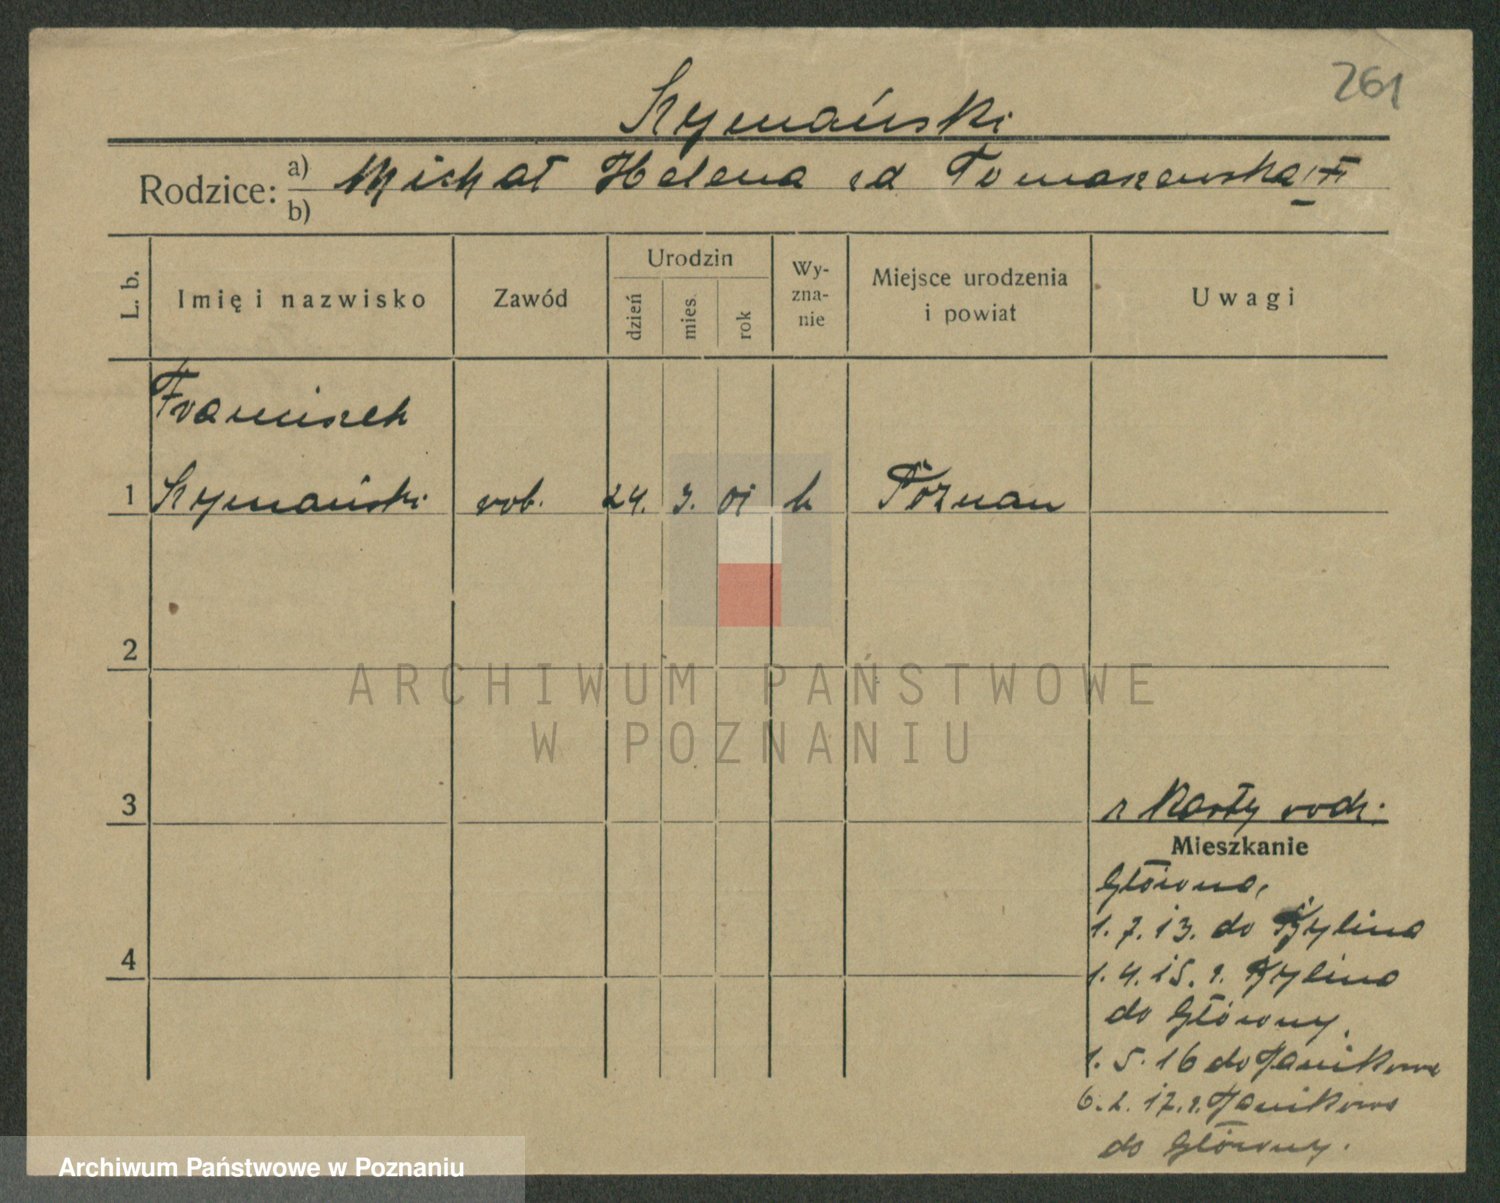 261
Szymański
Rodzice: a) b) Michał Helena zd Tomaszewska
L. b. Imię i nazwisko Zawód Urodzin dzień mies. rok Wy-zna-nie Miejsce urodzenia i powiat Uwagi
Franciszek
1 Szymański rob. 24. 3. 01 k Poznań
2
ARCHIWUM PAŃSTWOWE
W POZNANIU
3
z Karty rodz.
Mieszkanie
Główna,
1. 7. 13. do Żylina
4
1. 4. 15. z. Żylina
do Główny.
1. 5. 16 do Janikowa
6. 2. 17. z. Janikowo
do Główny.
Archiwum Państwowe w Poznaniu